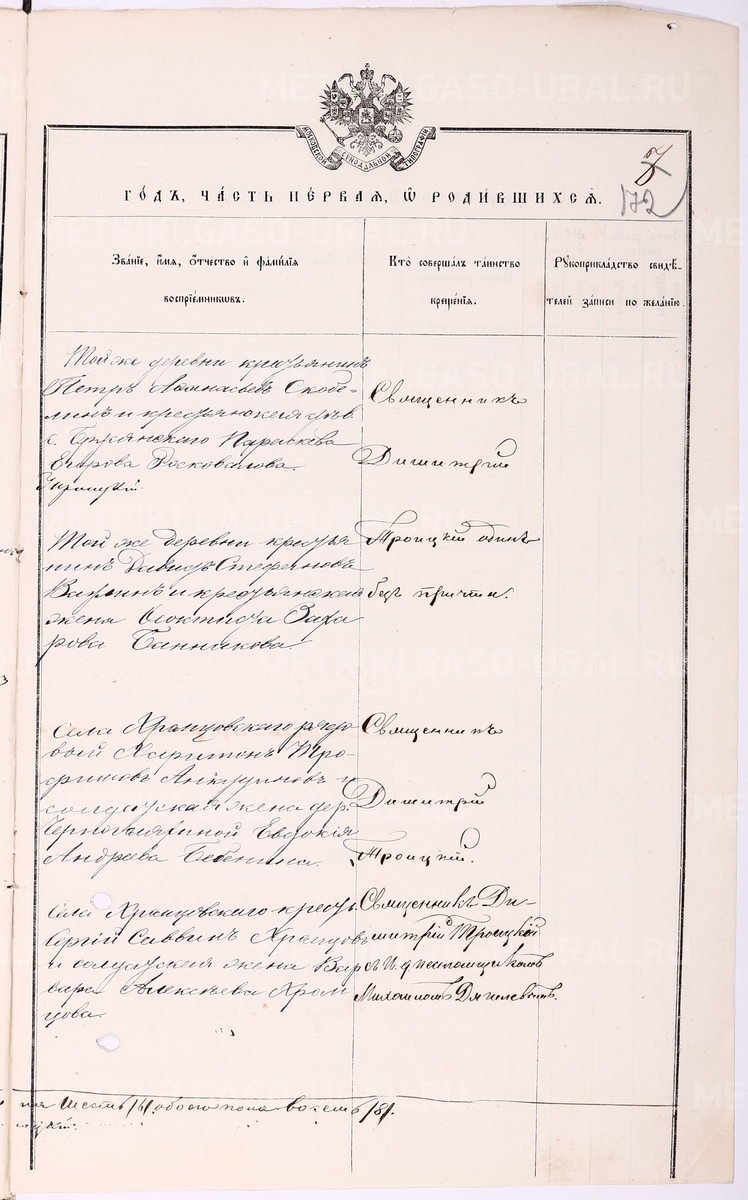 METRIKI.GASO-URAL.RU
МОСКОВСКОЙ СѴНОДАЛЬНОЙ ТИПОГРАФІИ
7
172
ГОДЪ, ЧАСТЬ ПЕРВАЯ, Ѡ РОДИВШИХСЯ.
Званіе, имя, отчество и фамилія
воспріемниковъ.
Кто совершалъ таинство
крещенія.
Рукоприкладство свидѣ-
телей записи по желанію.
Той же деревни крестьянинъ
Петръ Аѳанасьевъ Скобе-
линъ и крестьянская дѣв.
с. Парасковья
Егорова
Священникъ
Димитрій
Троицкій одинъ
безъ причта.
Той же деревни крестья
нинъ Давидъ Стефановъ
и крестьянская
жена Ѳеоктиста Заха
рова Банникова
Села Храмцовскаго рядо
вый Харитонъ Тро
фимовъ и
солдатская жена дер.
Евдокія
Андреева Бебенина.
Священникъ
Димитрій
Троицкій.
Села Храмцовскаго крест.
Сергій Саввинъ Храмцовъ
и солдатская жена Вар
вара Алексѣева Храм
цова.
Священникъ Ди-
митрій Троицкій
съ и. д. псаломщикомъ
Михаиломъ
шесть /6/. обоего пола восемь /8/.